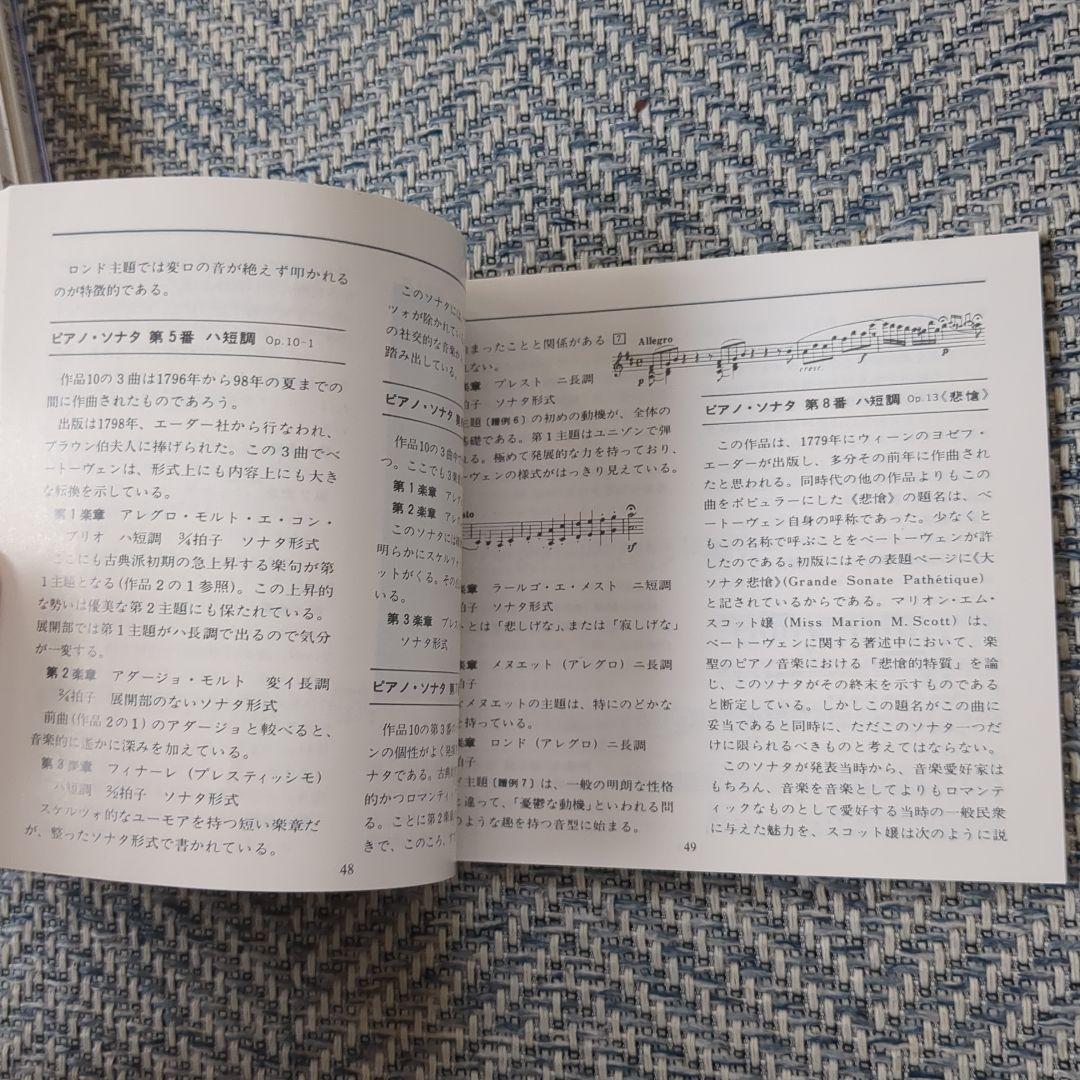 ロンド主題では変ロの音が絶えず叩かれる
のが特徴的である。
ピアノ・ソナタ 第5番 ハ短調 Op.10-1
作品10の3曲は1796年から98年の夏までの
間に作曲されたものであろう。
出版は1798年、エーダー社から行なわれ、
ブラウン伯夫人に捧げられた。この3曲でベ
ートーヴェンは、形式上にも内容上にも大き
な転換を示している。
第1楽章 アレグロ・モルト・エ・コン・
ブリオ ハ短調 3/4拍子 ソナタ形式
ここにも古典派初期の急上昇する楽句が第
1主題となる(作品2の1参照)。この上昇的
な勢いは優美な第2主題にも保たれている。
展開部では第1主題がハ長調で出るので気分
が一変する。
第2楽章 アダージョ・モルト 変イ長調
2/4拍子 展開部のないソナタ形式
前曲(作品2の1)のアダージョと較べると、
音楽的に遙かに深みを加えている。
第3楽章 フィナーレ(プレスティッシモ)
ハ短調 2/2拍子 ソナタ形式
スケルツォ的なユーモアを持つ短い楽章だ
が、整ったソナタ形式で書かれている。
このソナタには
ツォが除かれてい
の社交的な音楽か
踏み出している。
ピアノ・ソナタ 第
作品10の3曲中で
つ。ここでも3楽章
第1楽章 アレ
第2楽章 アレ
このソナタには
明らかにスケルツ
ットがくる。その
いる。
第3楽章 プレス
ソナタ形式
ピアノ・ソナタ 第7
作品10の第3番
ンの個性がよく
ナタである。古典
的かつロマンティ
る。ことに第2楽章
きで、このころ、す
48
まったことと関係がある
ない。
楽章 プレスト ニ長調
拍子 ソナタ形式
主題〔譜例6〕の初めの動機が、全体の
基礎である。第1主題はユニゾンで弾
る。極めて発展的な力を持っており、
ーヴェンの様式がはっきり見えている。
sto
sf
楽章 ラールゴ・エ・メスト ニ短調
拍子 ソナタ形式
とは「悲しげな」、または「寂しげな」
楽章 メヌエット(アレグロ)ニ長調
メヌエットの主題は、特にのどかな
を持っている。
楽章 ロンド(アレグロ)ニ長調
拍子
主題〔譜例7〕は、一般の明朗な性格
と違って、「憂鬱な動機」といわれる問
のような趣を持つ音型に始まる。
7 Allegro
p p cresc. f p
ピアノ・ソナタ 第8番 ハ短調 Op.13《悲愴》
この作品は、1779年にウィーンのヨゼフ・
エーダーが出版し、多分その前年に作曲され
たと思われる。同時代の他の作品よりもこの
曲をポピュラーにした《悲愴》の題名は、ベ
ートーヴェン自身の呼称であった。少なくと
もこの名称で呼ぶことをベートーヴェンが許
したのである。初版にはその表題ページに《大
ソナタ悲愴》(Grande Sonate Pathétique)
と記されているからである。マリオン・エム・
スコット嬢(Miss Marion M. Scott)は、
ベートーヴェンに関する著述中において、楽
聖のピアノ音楽における「悲愴的特質」を論
じ、このソナタがその終末を示すものである
と断定している。しかしこの題名がこの曲に
妥当であると同時に、ただこのソナタ一つだ
けに限られるべきものと考えてはならない。
このソナタが発表当時から、音楽愛好家は
もちろん、音楽を音楽としてよりもロマンテ
ィックなものとして愛好する当時の一般民衆
に与えた魅力を、スコット嬢は次のように説
49